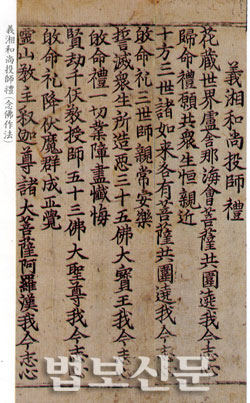 義湘和尚投師禮
花藏世界盧舍那海會菩薩共圍遶我今志心
歸命禮願共衆生恒親近
十方三世諸如來各有菩薩共圍遶我今志心
敀命礼三世師親常安樂
誓滅衆生所造惡三十五佛大寶王我今志心
敀命禮一切業障盡懺悔
賢劫千仸教授師五十三佛大聖尊我今志心
敀命礼降伏魔群成正覺
靈山教主釈迦尊諸大菩薩阿羅漢我今志心
義湘和尚投師禮 (念佛作法)
법보신문